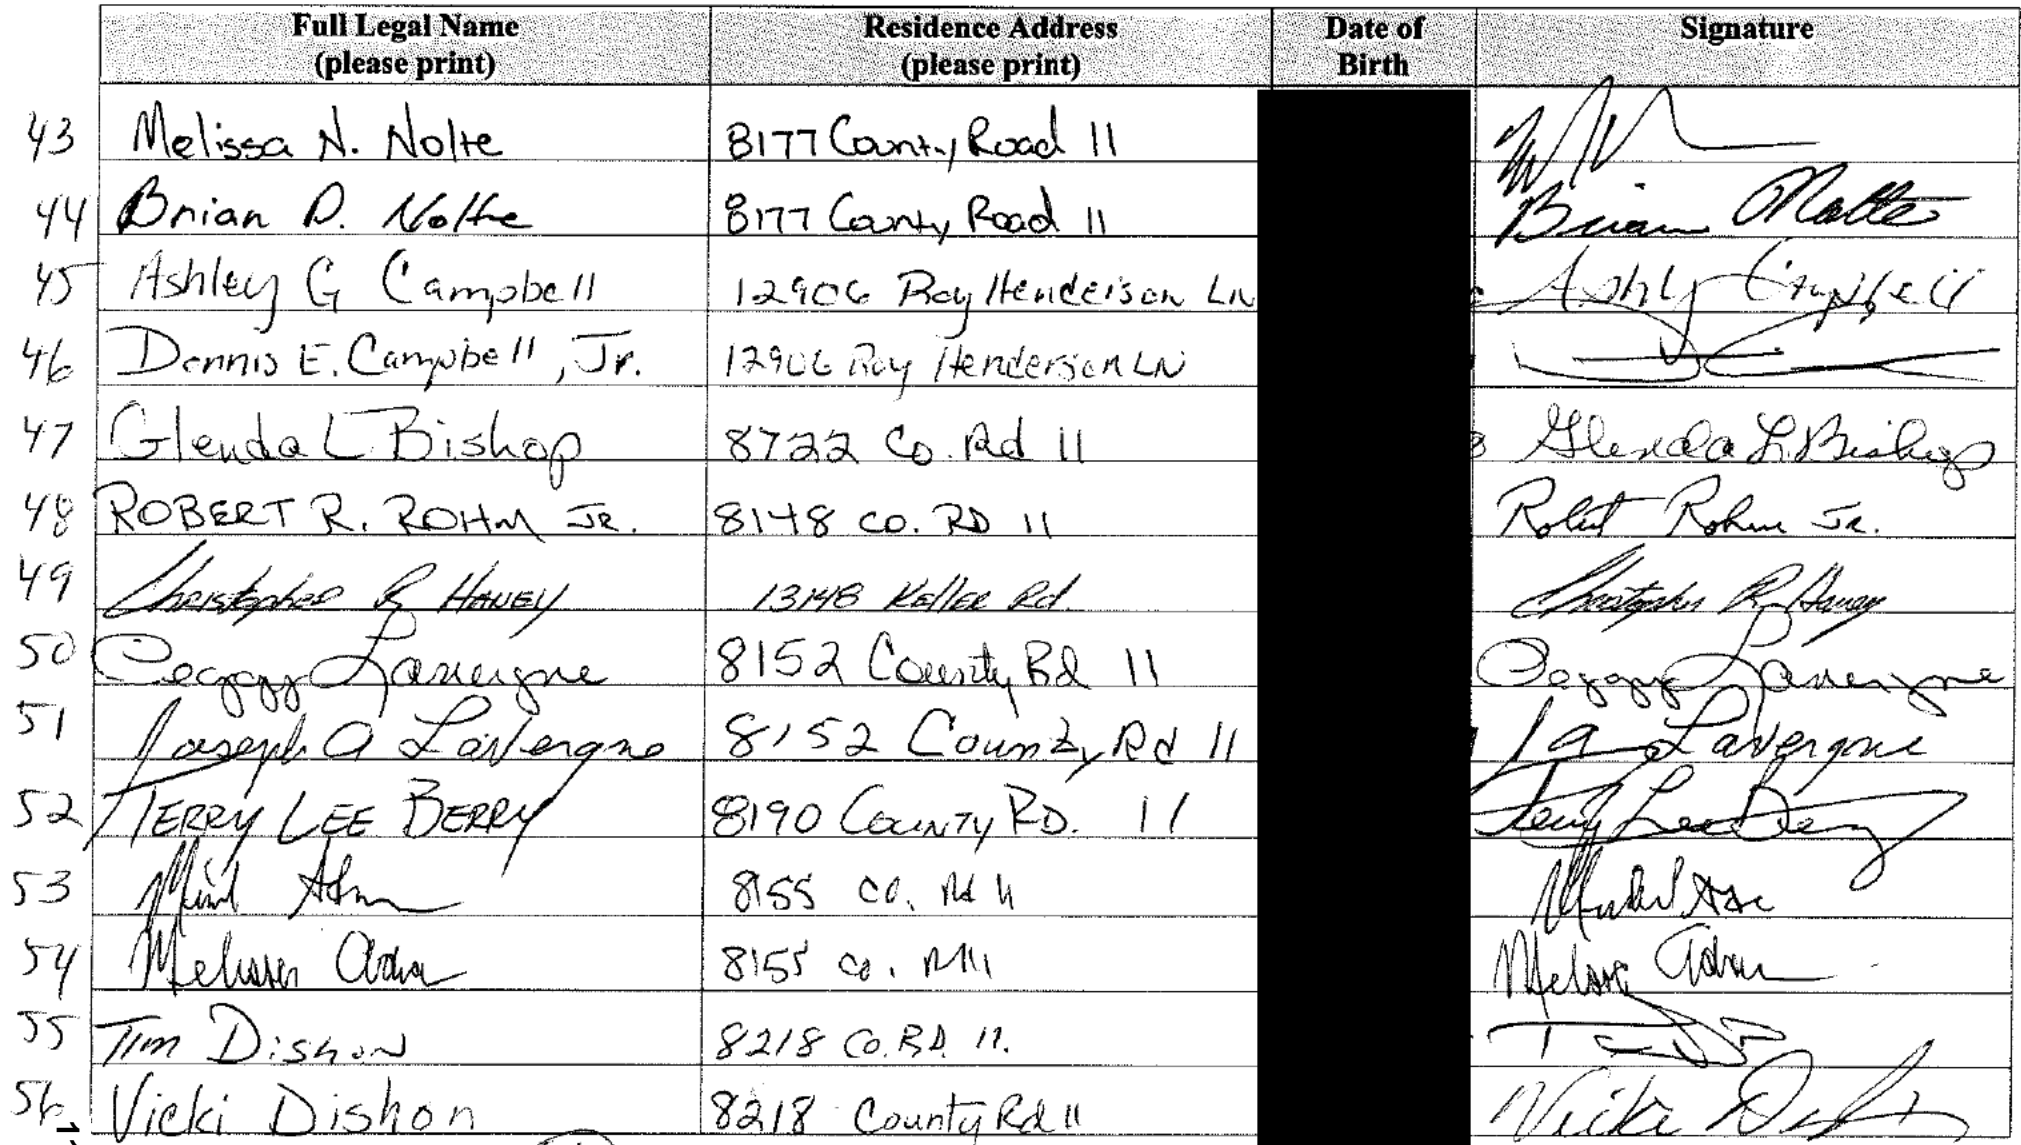 Full Legal Name (please print) Residence Address (please print) Date of Birth Signature
43 Melissa N. Nolte 8177 County Road 11
44 Brian D. Nolte 8177 County Road 11 Brian Nolte
45 Ashley G Campbell 12906 Roy Henderson LN Ashly Campbell
46 Dennis E. Campbell, Jr. 12906 Roy Henderson LN
47 Glenda L Bishop 8722 Co. Rd 11 Glenda L. Bishop
48 ROBERT R. ROHM JR. 8148 CO. RD 11 Robert Rohm Jr.
49 Christopher R HANEY 13148 Keller Rd. Christopher R. Haney
50 Peggy Lavergne 8152 County Rd 11 Peggy Lavergne
51 Joseph A LaVergne 8152 County Rd 11 J A LaVergne
52 TERRY LEE BERRY 8190 COUNTY RD. 11 Terry Lee Berry
53 8155 Co. Rd 11
54 Melissa 8155 Co. Melissa
55 Tim Dishon 8218 Co. RD. 11.
56 Vicki Dishon 8218 County Rd 11 Vicki